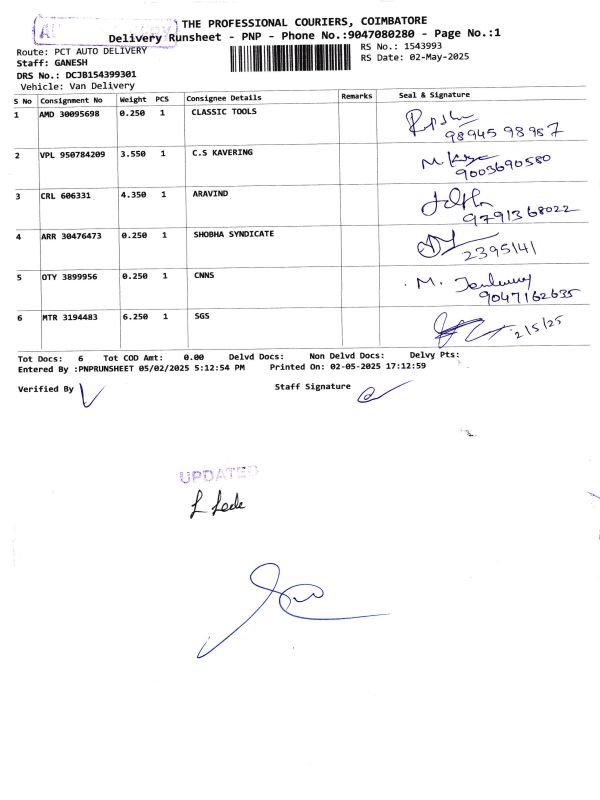 THE PROFESSIONAL COURIERS, COIMBATORE
Delivery Runsheet - PNP - Phone No.:9047080280 - Page No.:1
Route: PCT AUTO DELIVERY
RS No.: 1543993
Staff: GANESH
RS Date: 02-May-2025
DRS No.: DCJB154399301
Vehicle: Van Delivery
S No Consignment No Weight PCS Consignee Details Remarks Seal & Signature
1 AMD 30095698 0.250 1 CLASSIC TOOLS
98945 98957
2 VPL 950784209 3.550 1 C.S KAVERING
9003690580
3 CRL 606331 4.350 1 ARAVIND
9791368022
4 ARR 30476473 0.250 1 SHOBHA SYNDICATE
2395141
5 OTY 3899956 0.250 1 CNNS
M.
9047162635
6 MTR 3194483 6.250 1 SGS
2/5/25
Tot Docs: 6 Tot COD Amt: 0.00 Delvd Docs: Non Delvd Docs: Delvy Pts:
Entered By :PNPRUNSHEET 05/02/2025 5:12:54 PM Printed On: 02-05-2025 17:12:59
Verified By
Staff Signature
UPDATED